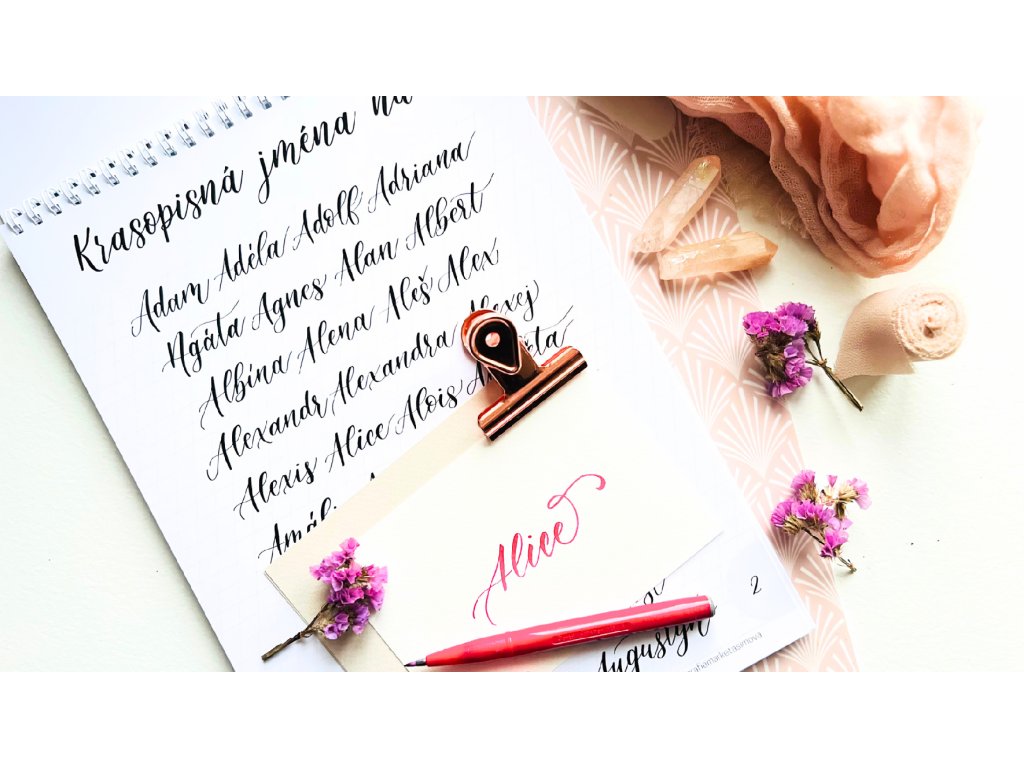 Krasopisná jména na
Adam Adéla Adolf Adriana
Agáta Agnes Alan Albert
Albína Alena Aleš Alex
Alexandr Alexandra Alexej
Alexis Alice Alois
Alice
2
Augustýn